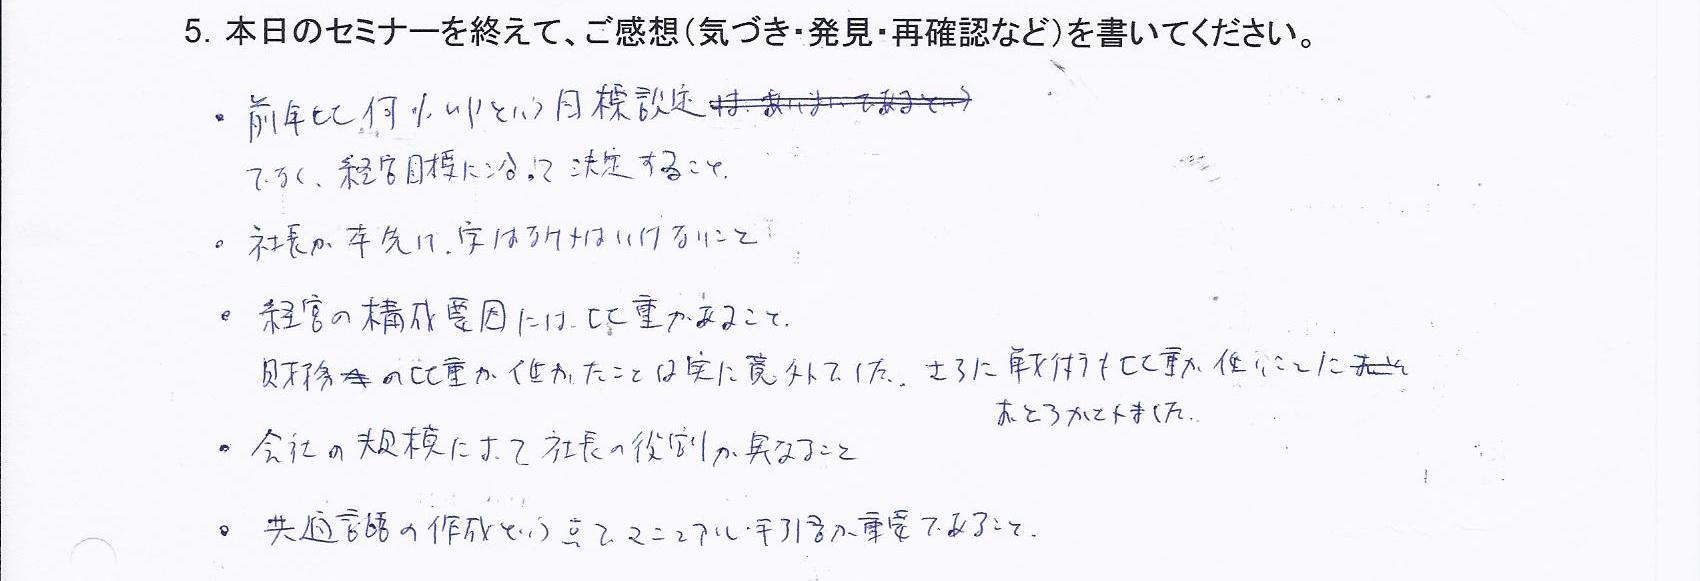 5. 本日のセミナーを終えて、ご感想(気づき・発見・再確認など)を書いてください。
・前年比何%UPという目標設定は、あいまいであるという
でなく、経営目標になって決定すること。
・社長が率先して学ばなければいけないこと
・経営の構成要因には、比重があること。
財務の比重が低かったことは実に意外でした。さらに戦術も比重が低いことに
おどろかされました。
・会社の規模によって社長の役割が異なること
・共通言語の作成という点で、マニュアル・手引書が重要であること。